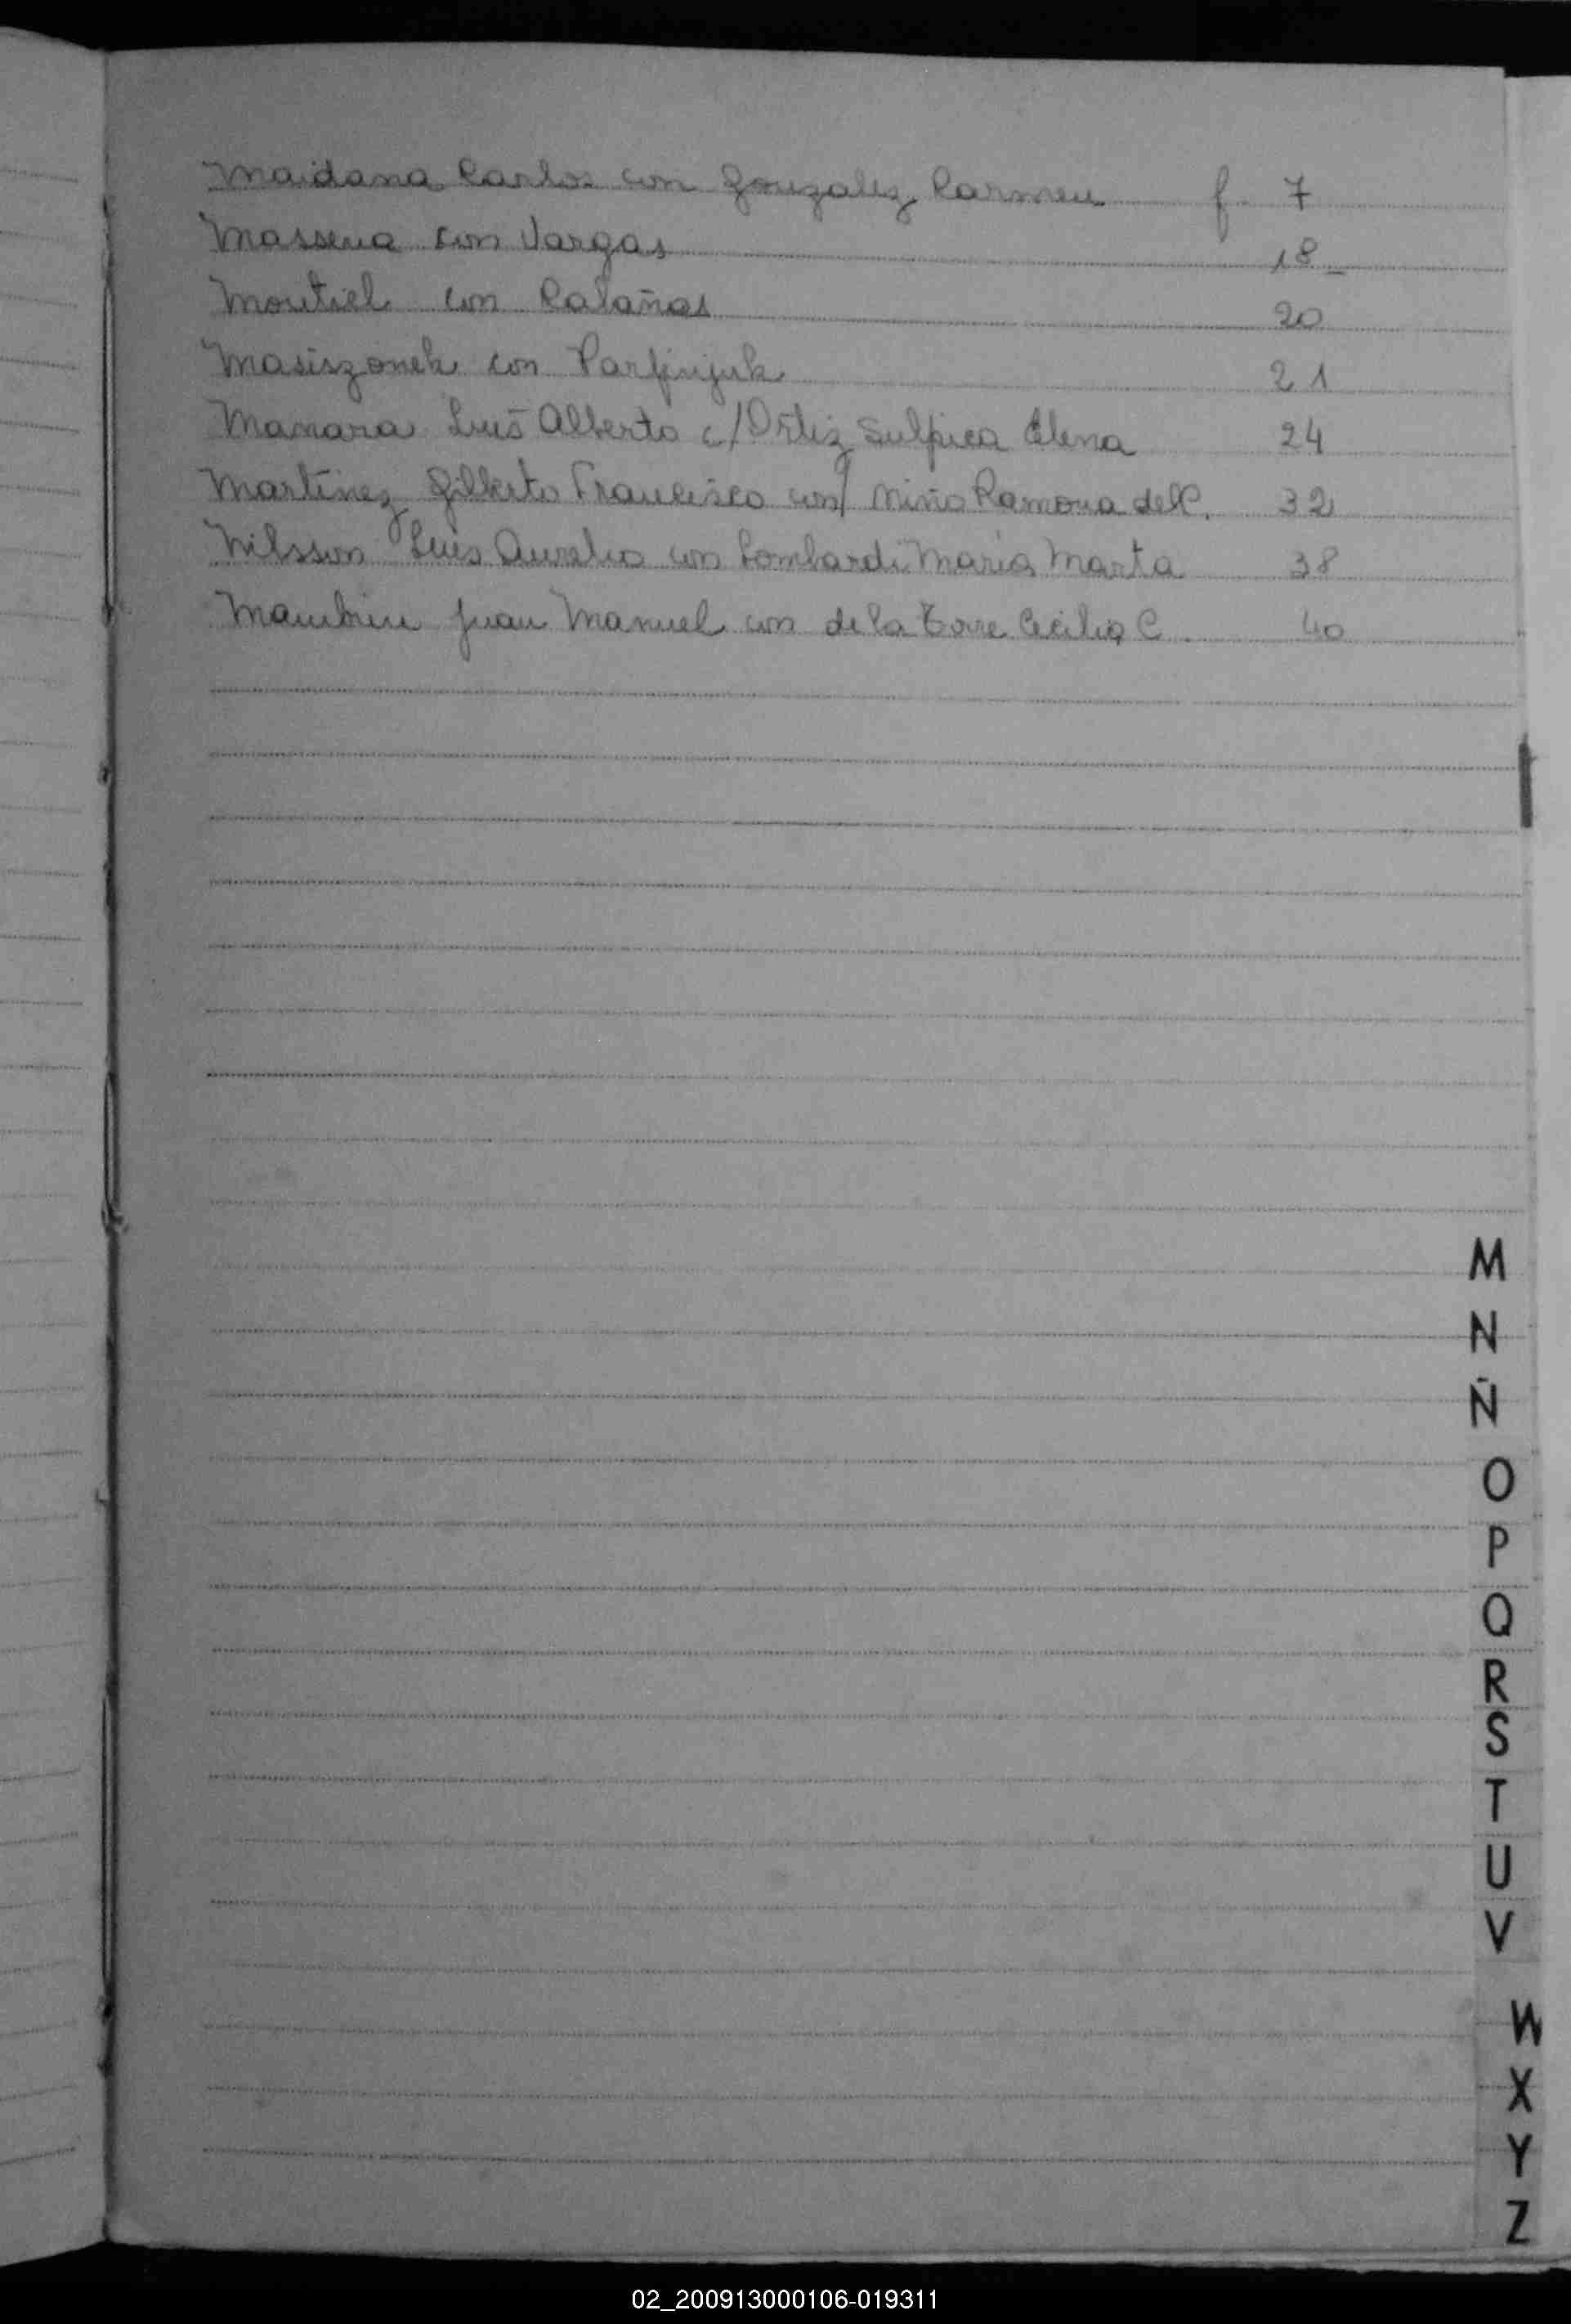 Maidana Carlos con Gonzalez Carmen f. 7
Massena con Vargas 18
Montiel con Calañas 20
Masiszonek con Parfinjuk 21
Mamara Luis Alberto c/ Ortiz Sulpica Elena 24
Martínez Gilberto Francisco con Miño Ramona del C. 32
Nilsson Luis Aurelio con Lombardi María Marta 38
Mambrin Juan Manuel con de la Torre Cecilia C. 40
M
N
Ñ
O
P
Q
R
S
T
U
V
W
X
Y
Z
02_200913000106-019311